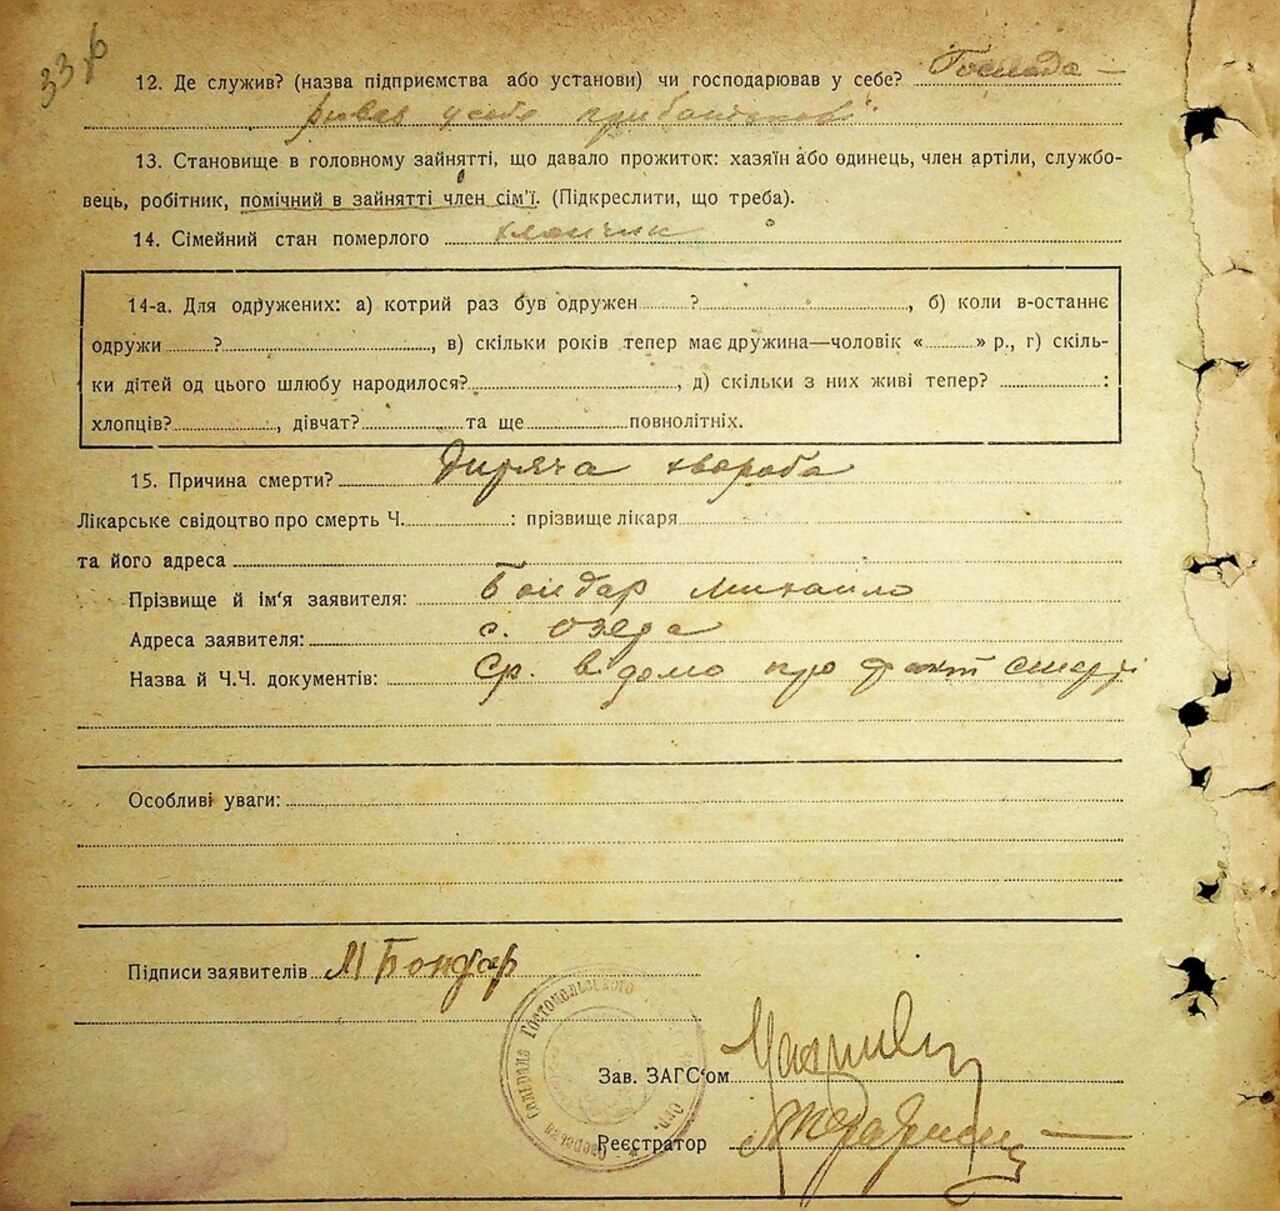 33
12. Де служив? (назва підприємства або установи) чи господарював у себе? Господа-
рював у себе при батькові
13. Становище в головному зайнятті, що давало прожиток: хазяїн або одинець, член артіли, службо-
вець, робітник, помічний в зайнятті член сім'ї. (Підкреслити, що треба).
14. Сімейний стан померлого хлопчик
14-а. Для одружених: а) котрий раз був одружен ? , б) коли в-останнє
одружи ? , в) скільки років тепер має дружина—чоловік « » р., г) скіль-
ки дітей од цього шлюбу народилося? , д) скільки з них живі тепер? :
хлопців? , дівчат? та ще повнолітніх.
15. Причина смерти? Дитяча хвороба
Лікарське свідоцтво про смерть Ч. : прізвище лікаря
та його адреса
Прізвище й ім'я заявителя: Бондар Михайло
Адреса заявителя: с. Озера
Назва й Ч.Ч. документів: Ср. відомо про факт смерті
Особливі уваги:
Підписи заявителів М Бондар
Озерська сільрада Гостомельського
Зав. ЗАГС'ом
Реєстратор